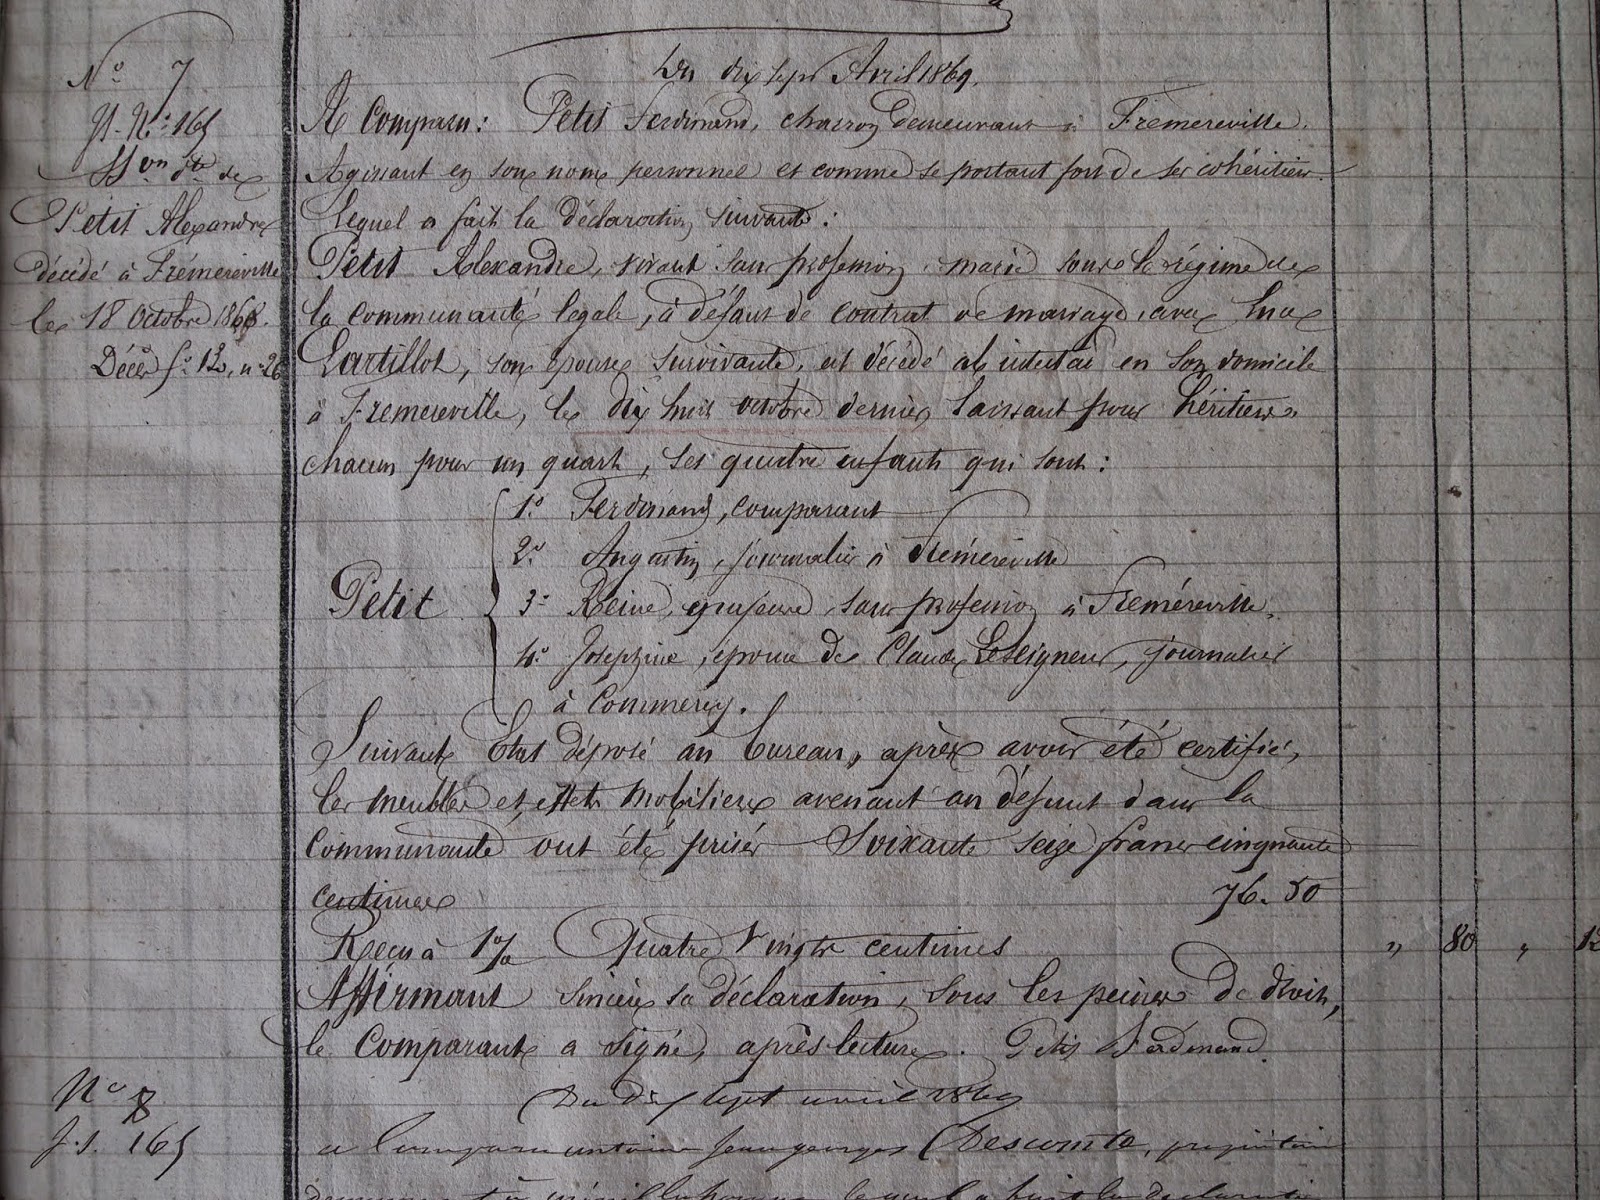 N° 7
Du dix sept Avril 1869.
N° 165
A Comparu: Petit Ferdinand, charron demeurant à Fremereville.
Son dte de
Agissant en son nom personnel et comme se portant fort de ses cohéritiers.
Petit Alexandre
Lequel a fait la déclaration suivante:
décédé à Frémereville
Petit Alexandre, vivant sans profession, marié sous le régime de
le 18 Octobre 1868.
la communauté légale, à défaut de contrat de mariage, avec
Décès f° 12, n° 26
Lartillot, son épouse survivante, est décédé ab intestat en son domicile
à Fremereville, le dix huit octobre dernier, laissant pour héritiers,
chacun pour un quart, ses quatre enfants qui sont:
1° Ferdinand, comparant
2° Augustin, journalier à Freméreville
Petit
3° Reine, majeure, sans profession à Freméreville.
4° Josephine, épouse de Claude Leseigneur, journalier
à Commercy.
Suivant Etat déposé au bureau, après avoir été certifié,
les meubles et effets mobiliers avenant au défunt dans la
Communauté ont été prisés Soixante seize francs cinquante
centimes 76. 50
Reçu à 1% Quatre Vingts centimes „ 80 „ 12
Affirmant sincère sa déclaration, sous les peines de droit,
le Comparant a signé, après lecture. Petit Ferdinand.
N° 8
Du dix sept avril 1869
165
a Comparu antoine Jean georges Descomte, propriétaire
demeurant à lequel a fait la déclaration